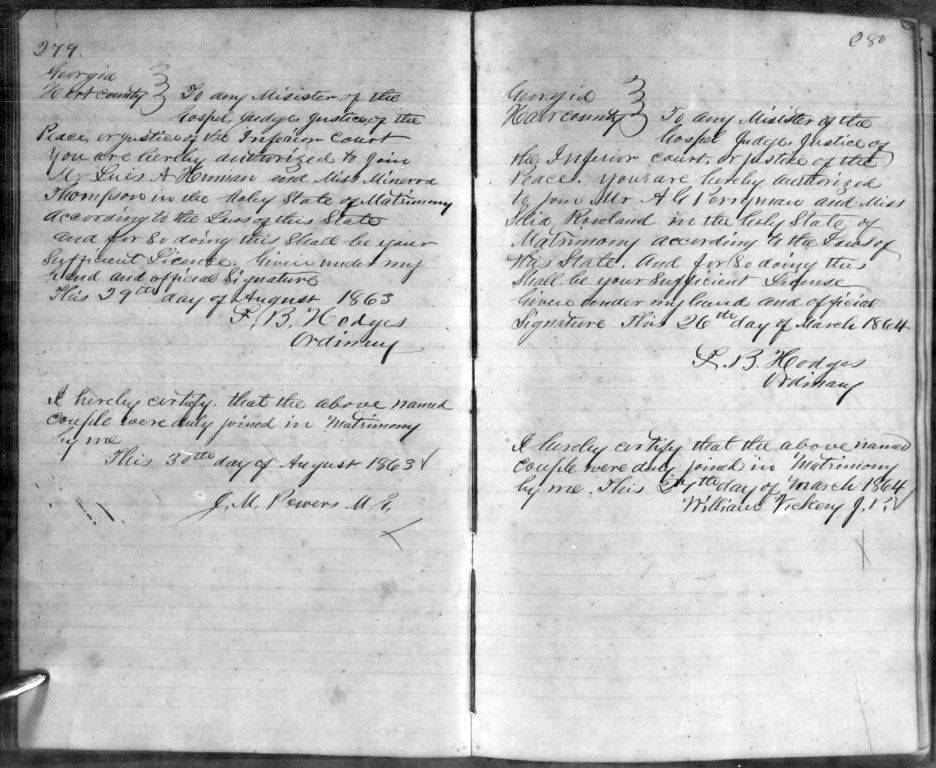 279.
Georgia
Hart county } To any Misister of the
Gospel, Judge, Justice of the
Peace, or Justice of the Inferior Court
You are hereby authorized to Join
Mr Luis A and Miss Minerva
Thompson in the Holy State of Matrimony
according to the Laws of this State
and for So doing this Shall be your
Sufficient Licence. Given under my
hand and official Signature
This 29th day of August 1863
F. B. Hodges
Ordinary
I hereby certify that the above named
couple were duly joined in Matrimony
by me
This 30th day of August 1863
J. M. Powers M. G.
280
Georgia
Hart county } To any Misister of the
Gospel Judge, Justice of
the Inferior court, or justice of the
Peace. You are hereby authorized
to join Mr A G and Miss
Rowland in the holy State of
Matrimony according to the Laws of
this State. And for So doing this
Shall be your Sufficient License
Given under my hand and official
Signature This 26th day of March 1864
F. B. Hodges
Ordinary
I hereby certify that the above named
couple were duly joined in Matrimony
by me. This 27th day of March 1864
William Vickery J. P.